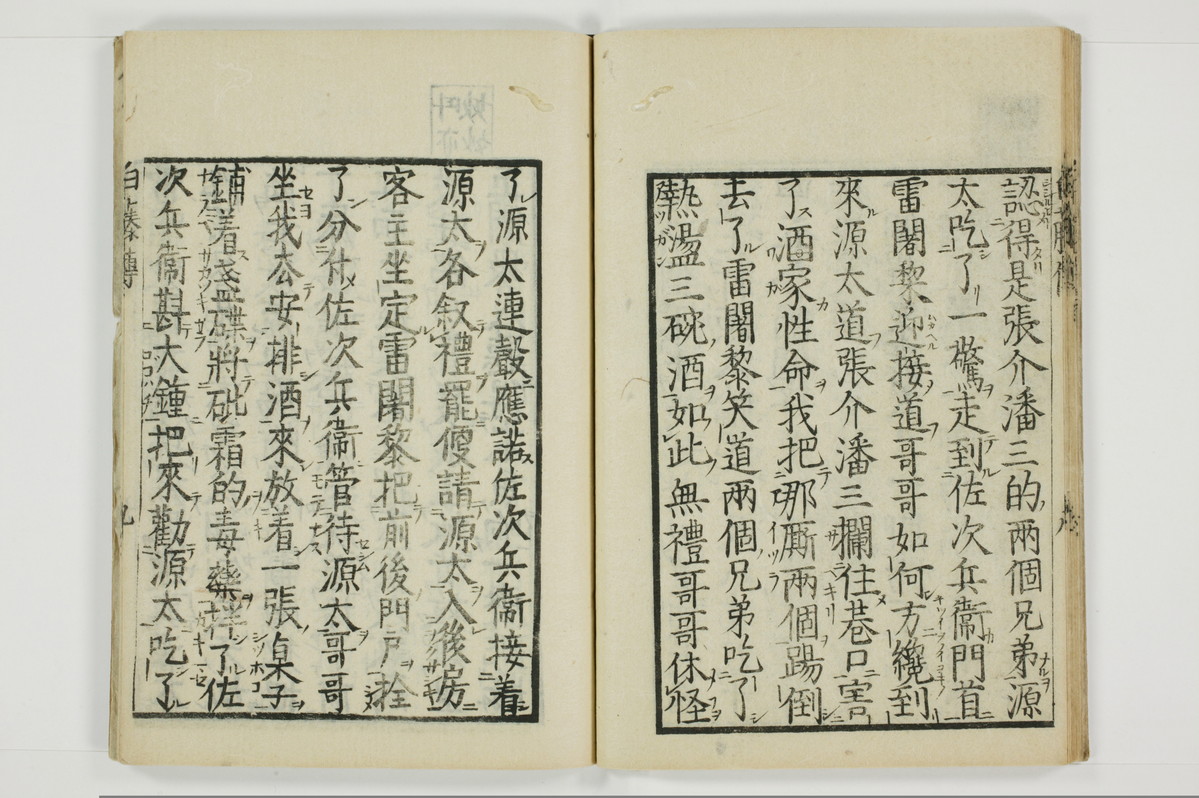 認得是張介潘三的兩個兄弟源
太吃了一驚走到佐次兵衞門首
雷闍黎迎接道哥哥如何方纔到
來源太道張介潘三攔住巷口害
了酒家性命我把那厮兩個踢倒
去了雷闍黎笑道兩個兄弟吃了
熱盪三碗酒如此無禮哥哥休怪
了源太連聲應諾佐次兵衞接着
源太各叙禮罷便請源太入後房
客主坐定雷闍黎把前後門戶拴
了分付佐次兵衞管待源太哥哥
坐我去安排酒來放着一張桌子
鋪着盞碟將砒霜的毒藥拌了佐
次兵衞斟大鍾把來勸源太吃了
白藤傳
九